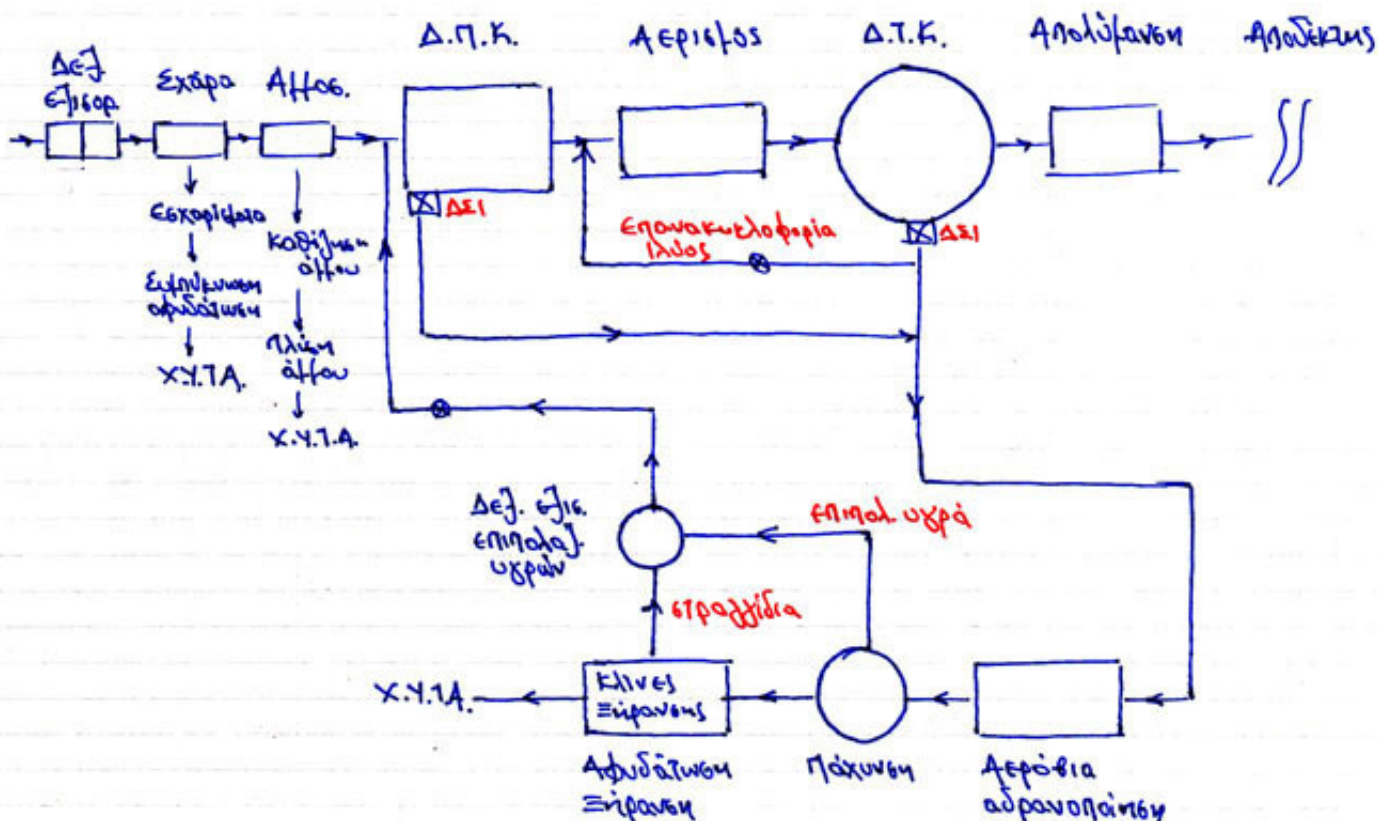 Δ.Π.Κ.
Αερισμός
Δ.Τ.Κ.
Απολύμανση
Αποδέκτης
Δεξ.
εξισορ.
Εσχάρα
Αμμοσ.
εσχαρίσματα
Συμπύκνωση
αφυδάτωση
Χ.Υ.Τ.Α.
καθίζηση
άμμου
πλύση
άμμου
Χ.Υ.Τ.Α.
ΔΣΙ
επανακυκλοφορία
ιλύος
ΔΣΙ
Δεξ. εξισ.
επιπολαζ.
υγρών
επιπολ. υγρά
στραγγίδια
Χ.Υ.Τ.Α.
κλίνες
ξήρανσης
Αφυδάτωση
Ξήρανση
Πάχυνση
Αερόβια
αδρανοποίηση